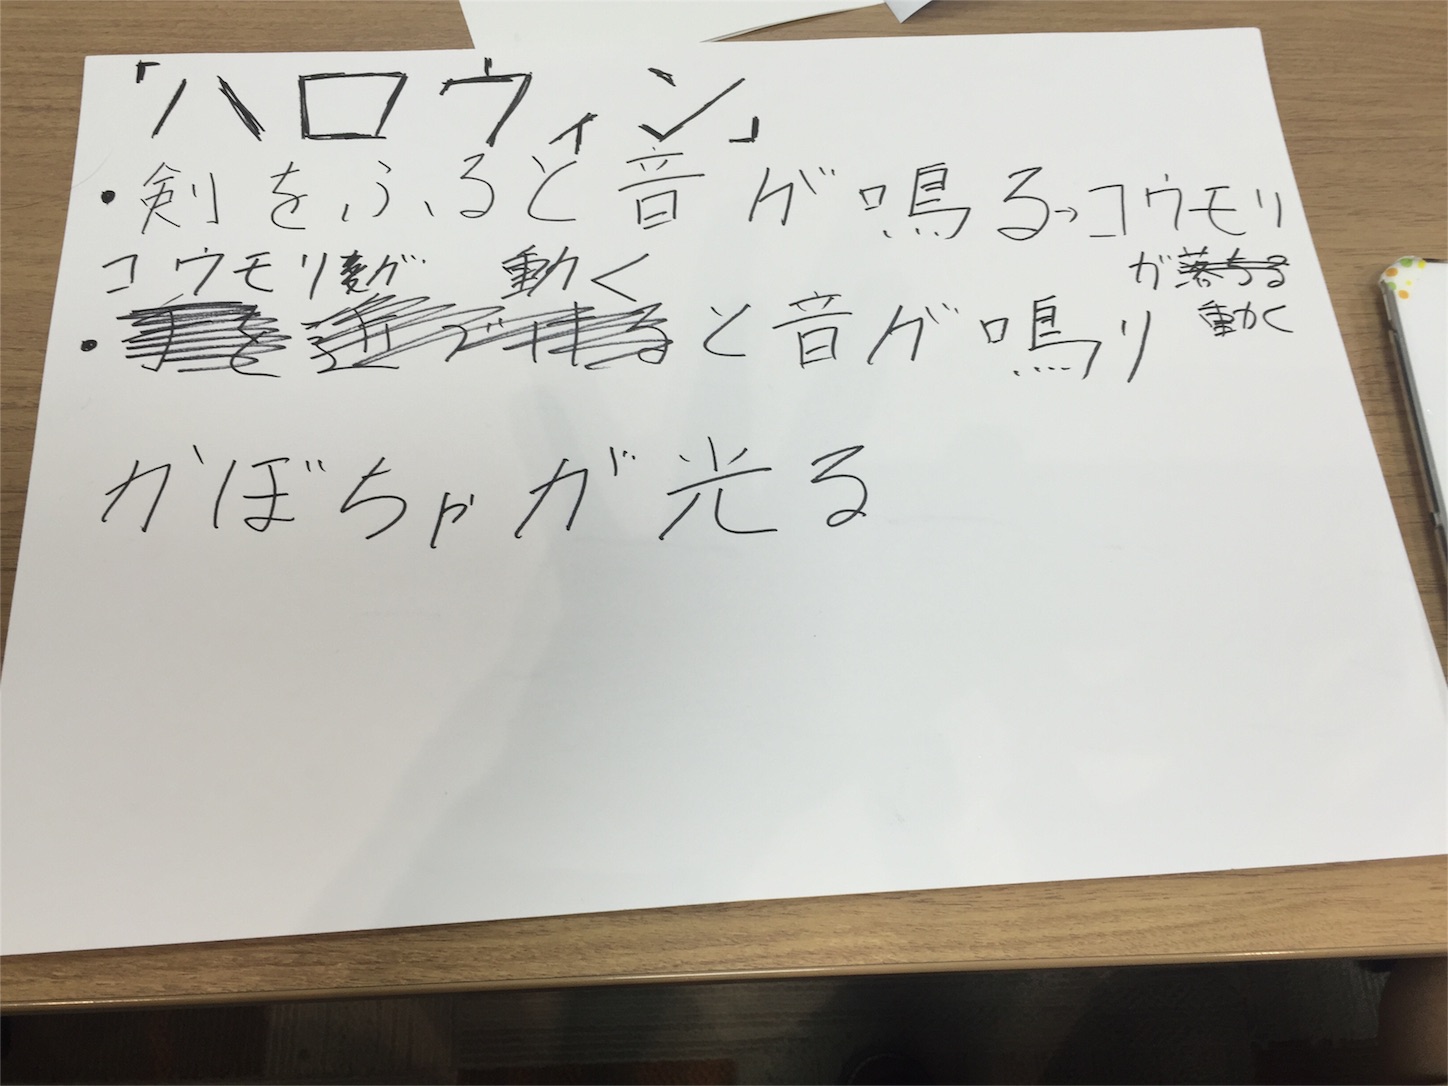 「ハロウィン」
・剣をふると音が鳴る→コウモリ
が落ちる
動く
コウモリが 動く
・と音が鳴り
かぼちゃが光る